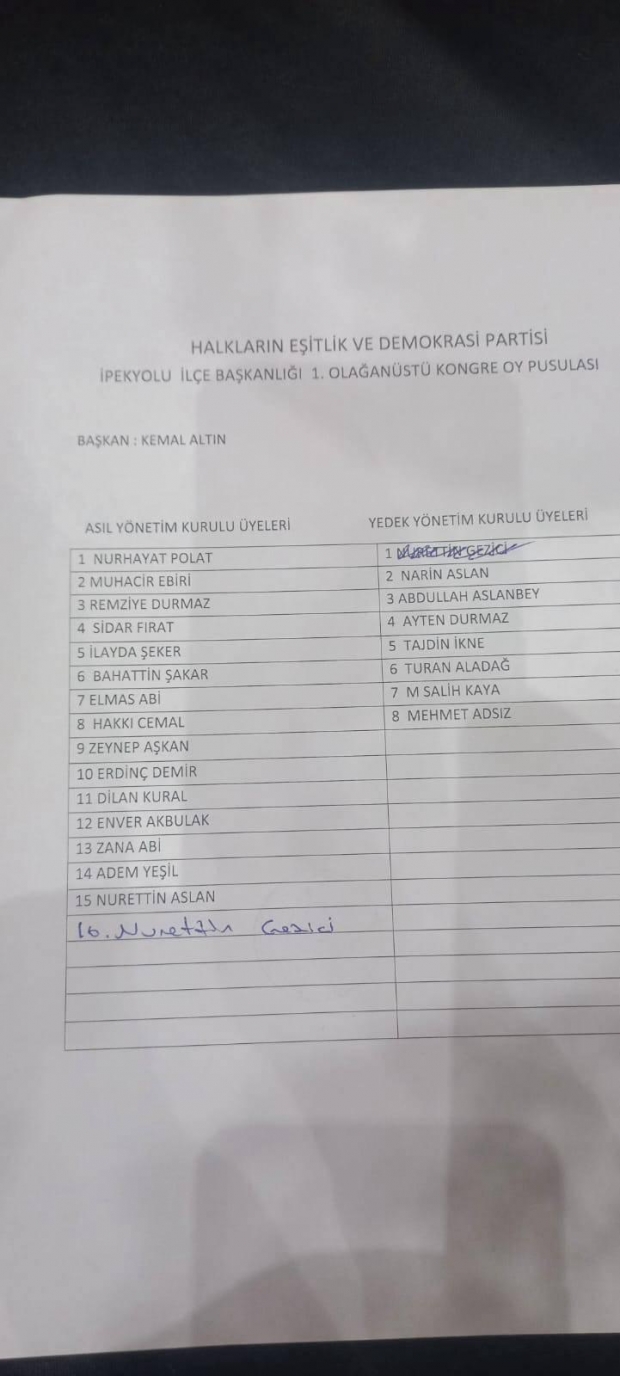 HALKLARIN EŞİTLİK VE DEMOKRASİ PARTİSİ
İPEKYOLU İLÇE BAŞKANLIĞI 1. OLAĞANÜSTÜ KONGRE OY PUSULASI
BAŞKAN : KEMAL ALTIN
ASIL YÖNETİM KURULU ÜYELERİ
1 NURHAYAT POLAT
2 MUHACİR EBİRİ
3 REMZİYE DURMAZ
4 SİDAR FIRAT
5 İLAYDA ŞEKER
6 BAHATTİN ŞAKAR
7 ELMAS ABİ
8 HAKKI CEMAL
9 ZEYNEP AŞKAN
10 ERDİNÇ DEMİR
11 DİLAN KURAL
12 ENVER AKBULAK
13 ZANA ABİ
14 ADEM YEŞİL
15 NURETTİN ASLAN
16. Nurettin Gezici
YEDEK YÖNETİM KURULU ÜYELERİ
1 NURETTİN GEZİCİ
2 NARİN ASLAN
3 ABDULLAH ASLANBEY
4 AYTEN DURMAZ
5 TAJDİN İKNE
6 TURAN ALADAĞ
7 M SALİH KAYA
8 MEHMET ADSIZ